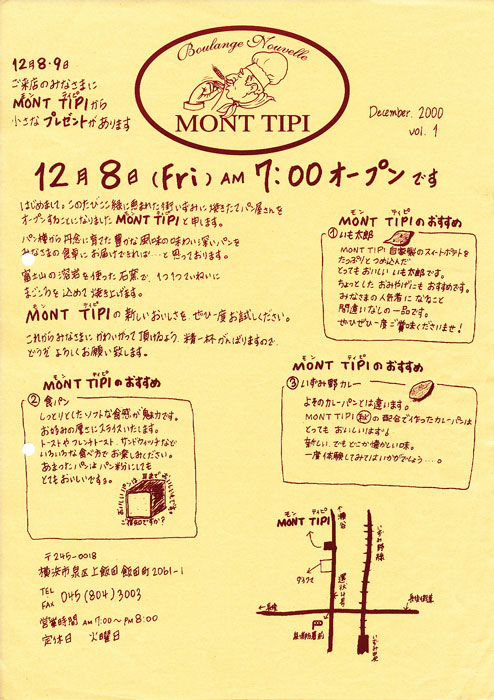 Boulange Nouvelle
MONT TIPI
December. 2000
vol. 1
12月8・9日
ご来店のみなさまに
モン ティピ
MONT TIPIから
小さなプレゼントがあります
12月8日(Fri) AM 7:00オープンです
はじめまして。このたびここ緑に恵まれた街いずみに焼きたてパン屋さんを
オープンすることになりましたMONT TIPIと申します。
パン種から丹念に育てた豊かな風味の味わい深いパンを
みなさまの食卓にお届けできれば…と思っております。
富士山の溶岩を使った石窯で、1つ1つていねいに
まごころを込めて焼き上げます。
モン ティピ
MONT TIPIの新しいおいしさを、ぜひ一度お試しください。
これからみなさまにかわいがって頂けるよう、精一杯がんばりますので、
どうぞよろしくお願い致します。
モン ティピ
MONT TIPIのおすすめ
①いも太郎
MONT TIPI自家製のスイートポテトを
たっぷりとつめ込んだ
とってもおいしいいも太郎です。
ちょっとしたおみやげにもおすすめです。
みなさまの人気者になること
間違いなしの一品です。
ぜひぜひ一度ご賞味くださいませ!
モン ティピ
MONT TIPIのおすすめ
②食パン
しっとりとしたソフトな食感が魅力です。
お好みの厚さにスライスいたします。
トーストやフレンチトースト、サンドウィッチなど
いろいろな食べ方でお楽しみください。
あまったパンはパン粉にしても
とてもおいしいです。
おいしいパンは
ご存知ですか?
モン ティピ
MONT TIPIのおすすめ
③いずみ野カレー
よそのカレーパンとは違います。
MONT TIPI秘の配合で作ったカレーパンは
とってもおいしいります!
新しい、でもどこか懐かしい味。
一度体験してみてはいかがでしょう…。
〒245-0018
横浜市泉区上飯田飯田町2061-1
TEL
FAX
045(804)3003
営業時間 AM 7:00〜PM 8:00
定休日 火曜日
モン ティピ
MONT TIPI
瀬谷
いずみ野線
環状4号
長後
長後街道
いずみ中央